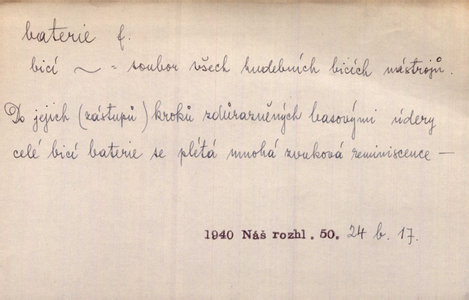 baterie f.
bicí ~ = soubor všech hudebních bicích nástrojů.
Do jejich (zástupů) kroků zdůrazněných basovými údery
celé bicí baterie se plétá mnohá zvuková reminiscence —
1940 Náš rozhl. 50. 24 b. 17.